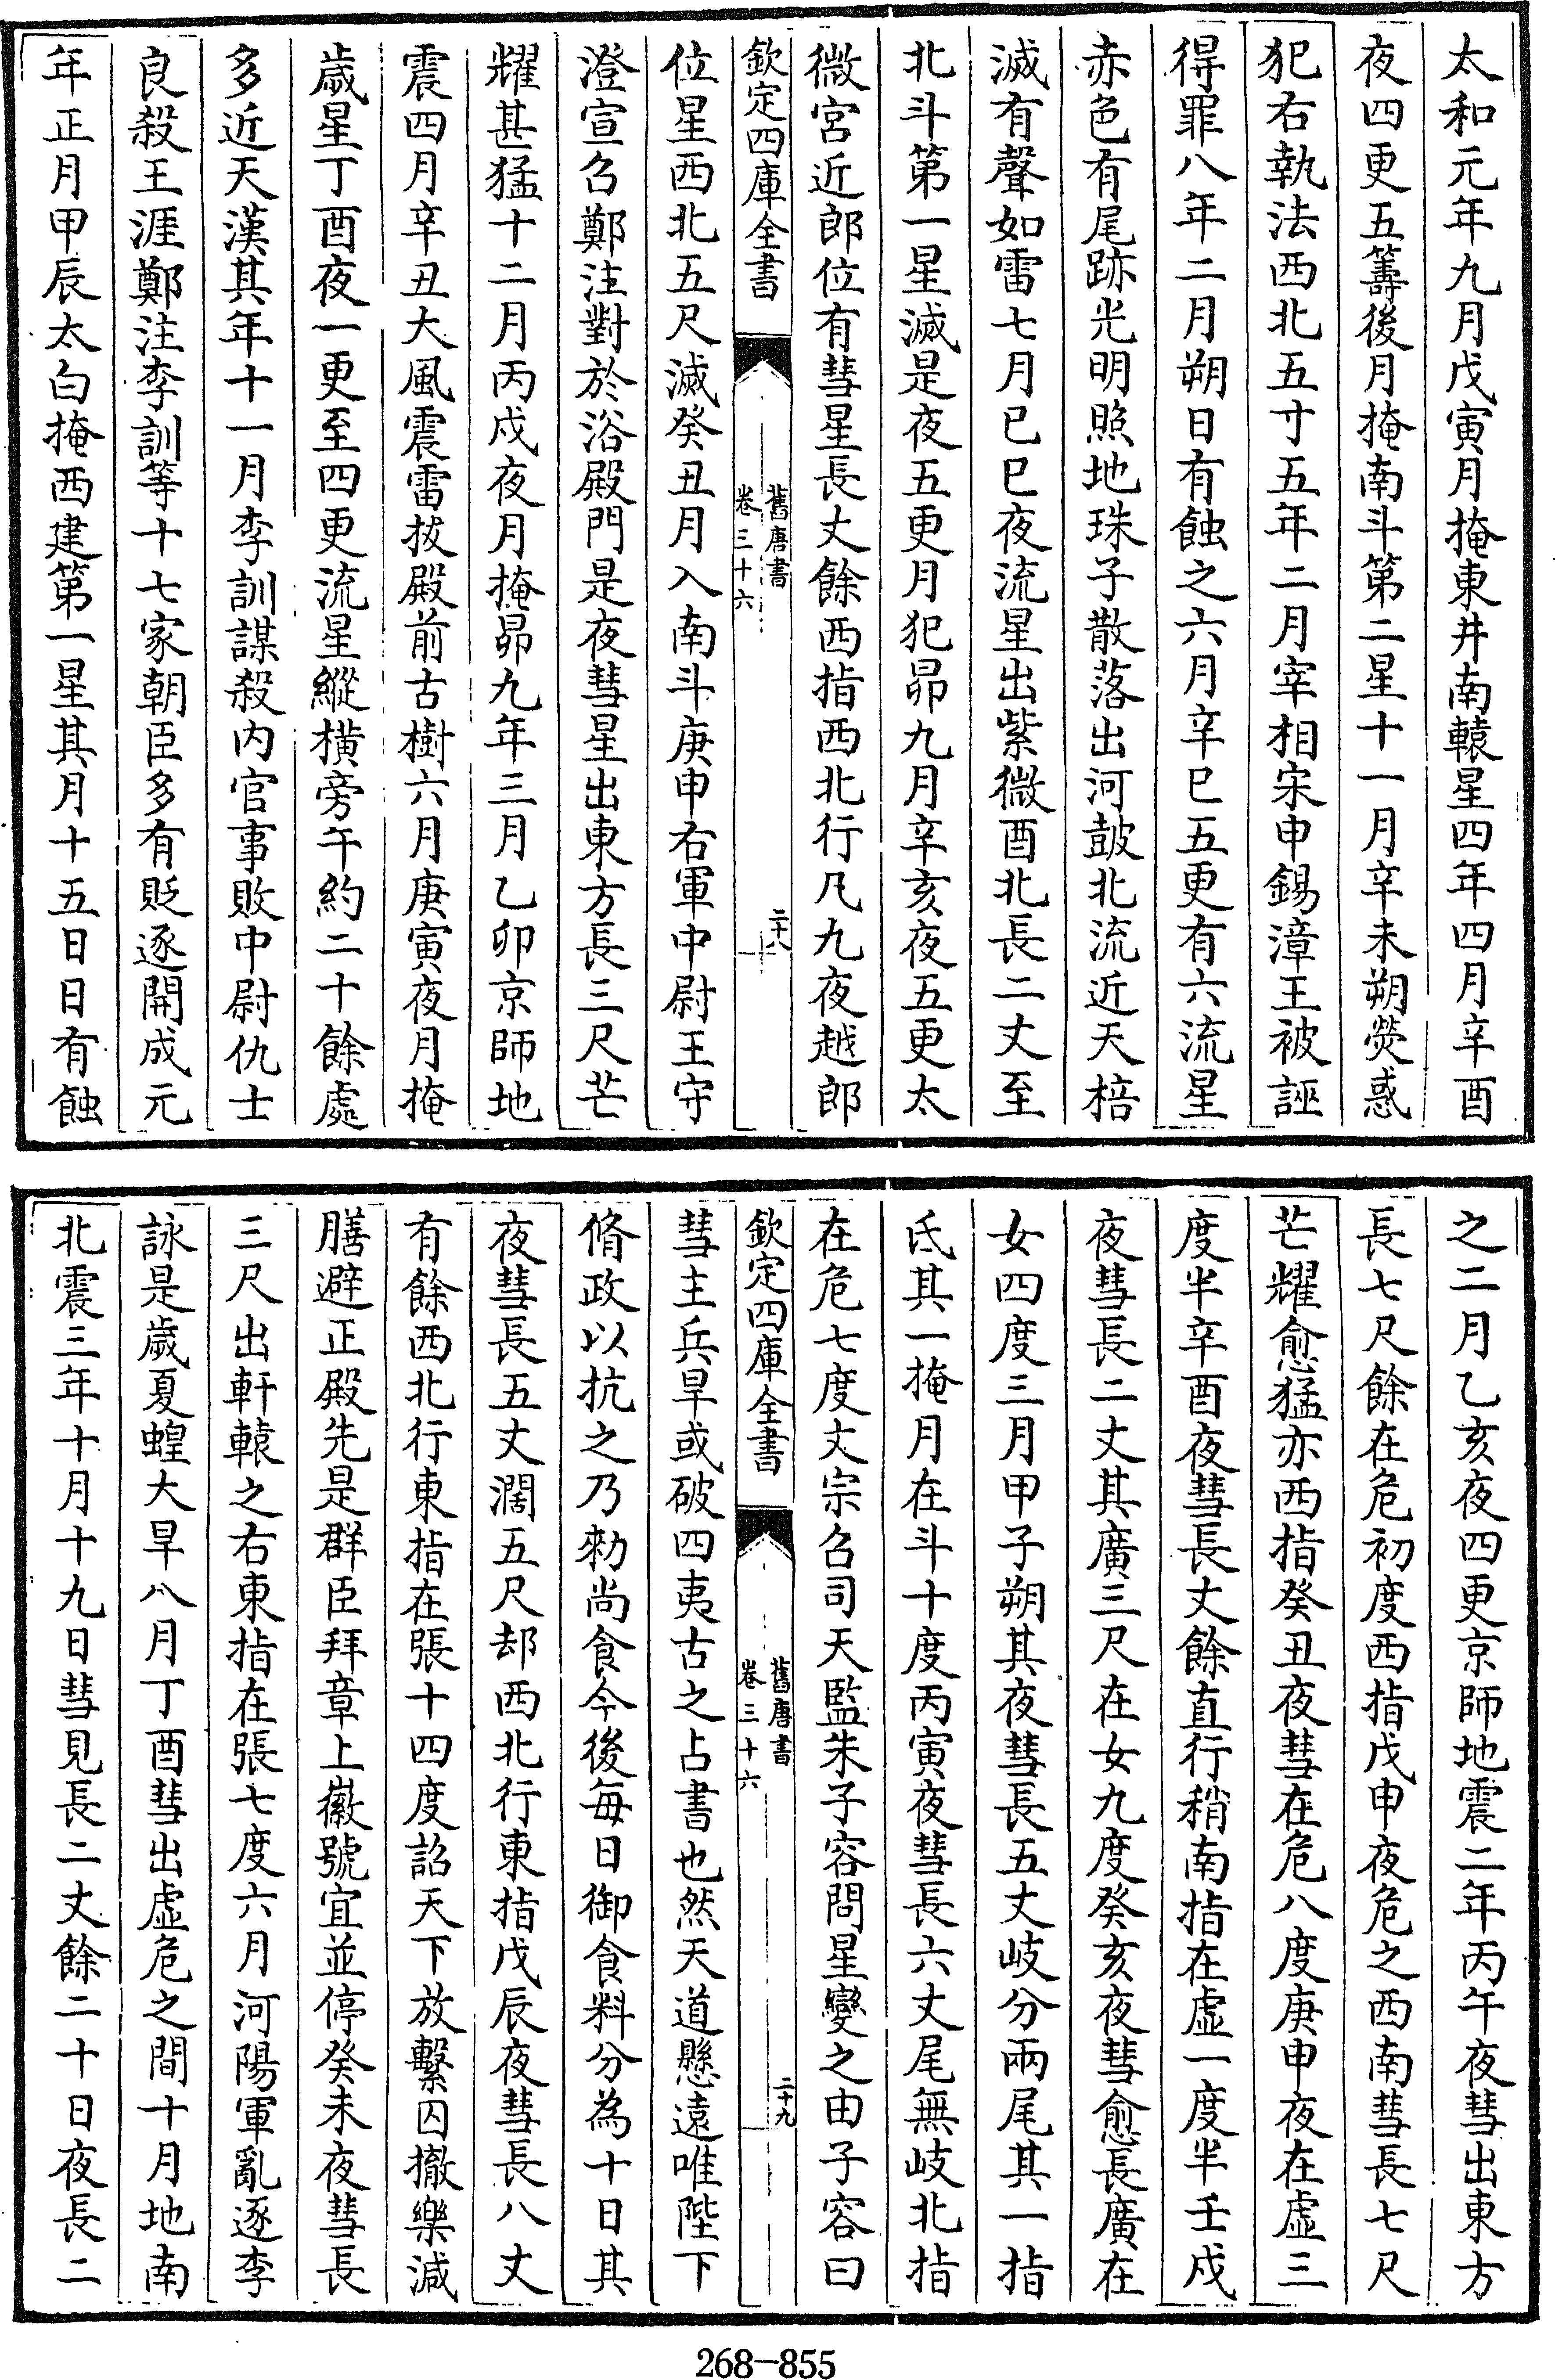 太和元年九月戊寅月掩東井南轅星四年四月辛酉
夜四更五籌後月掩南斗第二星十一月辛未朔熒惑
犯右執法西北五寸五年二月宰相宋申錫漳王被誣
得罪八年二月朔日有蝕之六月辛巳五更有六流星
赤色有尾跡光明照地珠子散落出河鼓北流近天棓
滅有聲如雷七月己巳夜流星出紫微酉北長二丈至
北斗第一星滅是夜五更月犯昴九月辛亥夜五更太
微宮近郎位有彗星長丈餘西指西北行凡九夜越郎
欽定四庫全書
舊唐書
卷三十六
二十八
位星西北五尺滅癸丑月入南斗庚申右軍中尉王守
澄宣召鄭注對於浴殿門是夜彗星出東方長三尺芒
耀甚猛十二月丙戌夜月掩昴九年三月乙卯京師地
震四月辛丑大風震雷拔殿前古樹六月庚寅夜月掩
歲星丁酉夜一更至四更流星縱橫旁午約二十餘處
多近天漢其年十一月李訓謀殺内官事敗中尉仇士
良殺王涯鄭注李訓等十七家朝臣多有貶逐開成元
年正月甲辰太白掩西建第一星其月十五日日有蝕
之二月乙亥夜四更京師地震二年丙午夜彗出東方
長七尺餘在危初度西指戊申夜危之西南彗長七尺
芒耀愈猛亦西指癸丑夜彗在危八度庚申夜在虛三
度半辛酉夜彗長丈餘直行稍南指在虛一度半壬戌
夜彗長二丈其廣三尺在女九度癸亥夜彗愈長廣在
女四度三月甲子朔其夜彗長五丈岐分兩尾其一指
氐其一掩月在斗十度丙寅夜彗長六丈尾無岐北指
在危七度文宗召司天監朱子容問星變之由子容曰
欽定四庫全書
舊唐書
卷三十六
二十九
彗主兵旱或破四夷古之占書也然天道懸遠唯陛下
脩政以抗之乃勑尚食今後每日御食料分為十日其
夜彗長五丈濶五尺却西北行東指戊辰夜彗長八丈
有餘西北行東指在張十四度詔天下放繫囚撤樂減
膳避正殿先是群臣拜章上徽號宜並停癸未夜彗長
三尺出軒轅之右東指在張七度六月河陽軍亂逐李
詠是歲夏蝗大旱八月丁酉彗出虛危之間十月地南
北震三年十月十九日彗見長二丈餘二十日夜長二
268-855